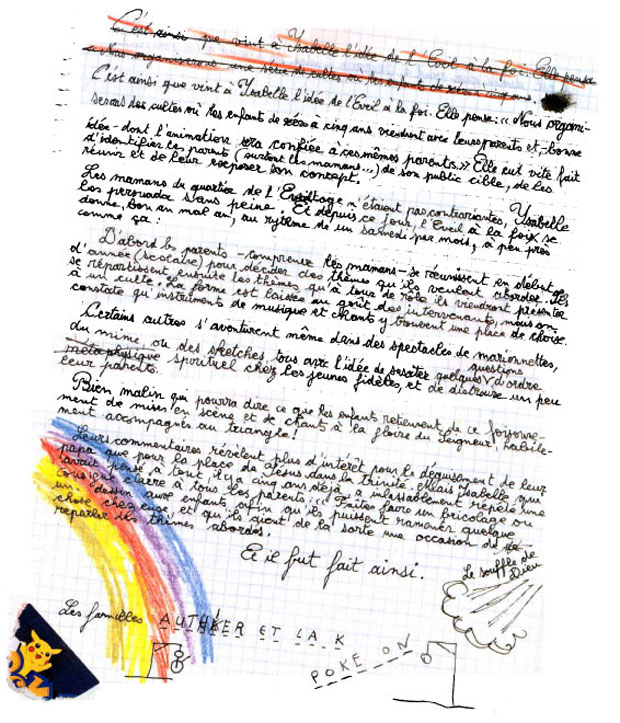 C'est ainsi que vint à Ysabelle l'idée de l'Eveil à la foi. Elle pensa
« Nous organiserons une série de cultes où les enfant de zéro à cinq ans
C'est ainsi que vint à Ysabelle l'idée de l'Eveil à la foi. Elle pensa : « Nous organi-
serons des cultes où les enfants de zéro à cinq ans viendront avec leurs parents et -bonne
idée- dont l'animation sera confiée à ces mêmes parents. » Elle eut vite fait
d'identifier les parents (surtout les mamans...) de son public cible, de les
réunir et de leur exposer son concept.
Les mamans du quartier de l'Ermitage n'étaient pas contrariantes, Ysabelle
les persuada sans peine. Et depuis ce jour, l'Eveil à la foi se
donne, bon an mal an, au rythme de un samedi par mois, à peu près
comme ça :
D'abord les parents - comprenez les mamans - se réunissent en début
d'année (scolaire) pour décider des thèmes qu'ils veulent aborder. Ils
se répartissent ensuite les thèmes qu'à tour de rôle ils viendront présenter
à un culte. La forme est laissée au goût des intervenants, mais on
constate qu'instruments de musique et chants y trouvent une place de choix.
Certains autres s'aventurent même dans des spectacles de marionnettes,
du mime, ou des sketches, tous avec l'idée de susciter quelques questions d'ordre
métaphysique spirituel chez les jeunes fidèles, et de distraire un peu
leur parents.
Bien malin qui pourra dire ce que les enfants retiennent de ce foisonne-
ment de mises en scène et de chants à la gloire du Seigneur, habile-
ment accompagnés au triangle!
Leurs commentaires révèlent plus d'intérêt pour le déguisement de leur
papa que pour la place de Jésus dans la trinité. Mais Ysabelle, qui
avait pensé à tout, il y a cinq ans déjà, a inlassablement répété une
consigne claire à tous les parents : « Faites faire un bricolage ou
un dessin aux enfants, afin qu'ils puissent ramener quelque
chose chez eux et qu'ils aient de la sorte une occasion de re-
reparler des thèmes abordés.
Et il fut fait ainsi.
Le souffle de
Dieu
Les familles AUTHIER ET LA K
POKE ON